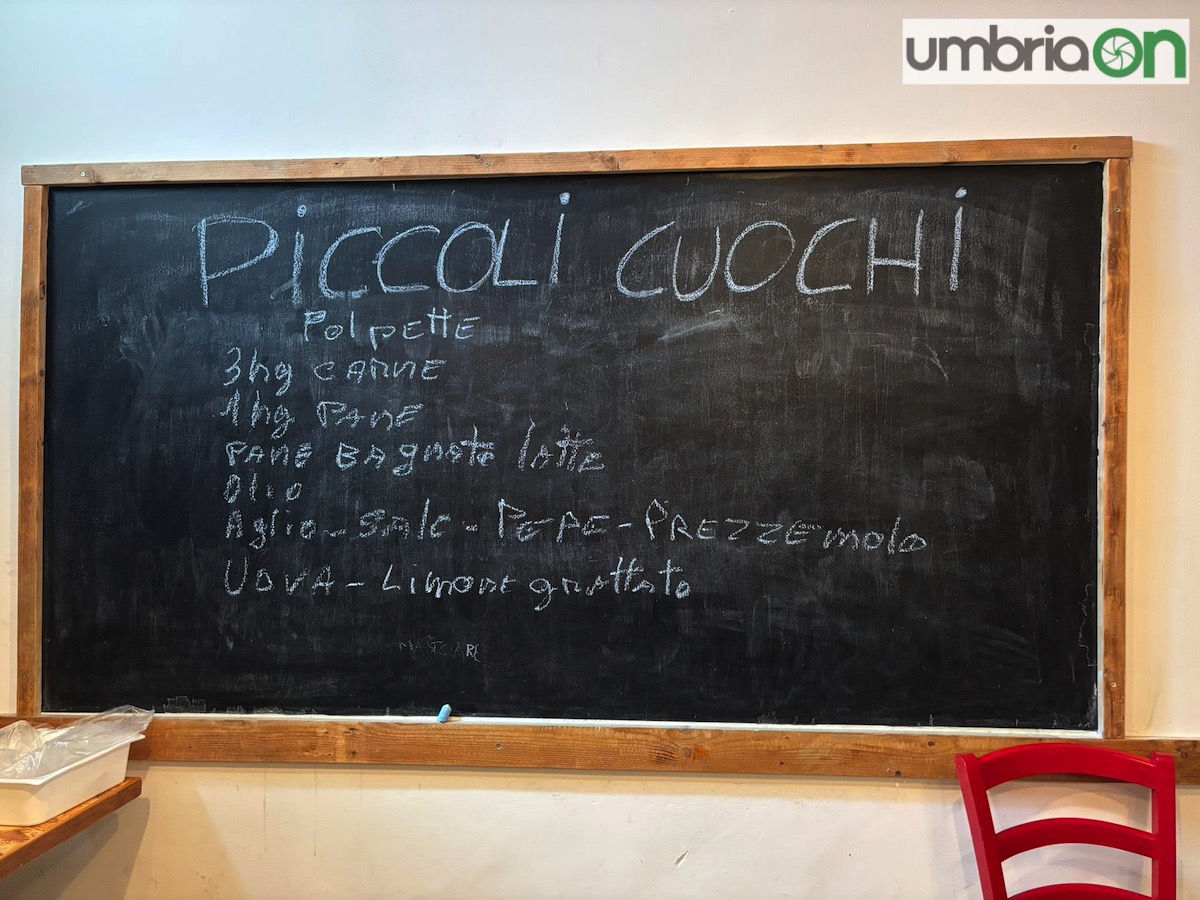 umbriaON
PiCCOLi CUOCHi
PolpeTTE
3hg CARNE
1hg PANE
PANE BAgnato latte
Olio
Aglio - SALE - PEPE - PREZZEmolo
UOVA - Limone grattato